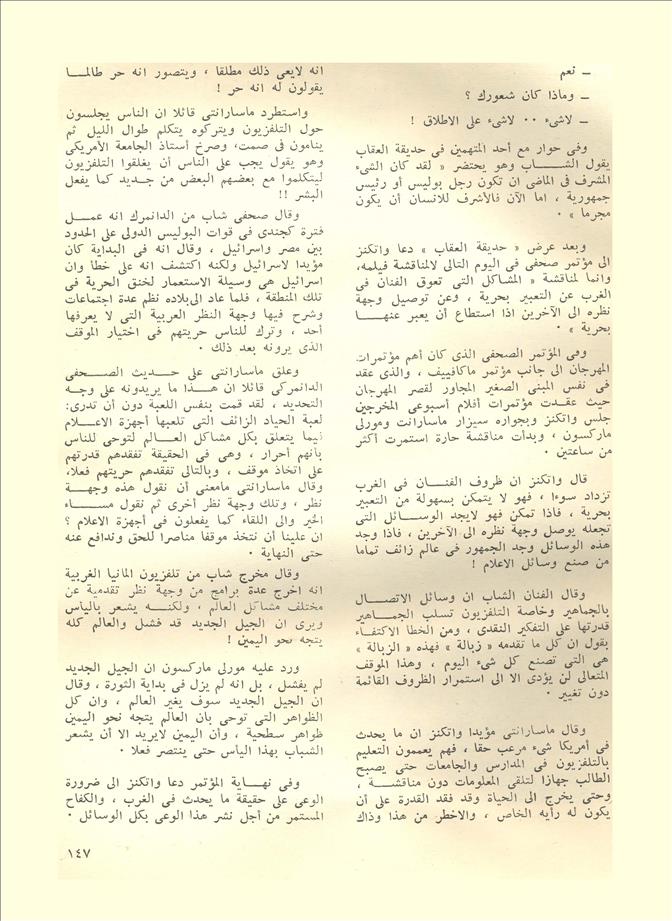 ـ نعم
ـ وماذا كان شعورك ؟
ـ لاشىء ٠٠ لاشىء على الاطلاق !
وفى حوار مع أحد المتهمين فى حديقة العقاب
يقول الشـــاب وهو يحتضر « لقد كان الشىء
المشرف فى الماضى ان تكون رجل بوليس أو رئيس
جمهورية ، اما الآن فالأشرف للانسان أن يكون
مجرما » ٠
وبعد عرض « حديقة العقاب » دعا واتكنز
الى مؤتمر صحفى فى اليوم التالى لالمناقشة فيلمه،
وانما لمناقشة « المشاكل التى تعوق الفنان فى
الغرب عن التعبير بحرية ، وعن توصيل وجهة
نظره الى الآخرين اذا استطاع أن يعبر عنهــا
بحرية » ٠
وفى المؤتمر الصحفى الذى كان أهم مؤتمرات
المهرجان الى جانب مؤتمر ماكافييف ، والذى عقد
فى نفس المبنى الصغير المجاور لقصر المهرجان
حيث عقـدت مؤتمرات أفلام أسبوعى المخرجين
جلس واتكنز وبجواره سيزار ماسارانت ومورلى
ماركسون ، وبدأت مناقشة حارة استمرت أكثر
من ساعتين ٠
قال واتكنز ان ظروف الفنــان فى الغرب
تزداد سوءا ، فهو لا يتمكن بسهولة من التعبير
بحرية ، فاذا تمكن فهو لايجد الوســائل التى
تجعله يوصل وجهة نظره الى الآخرين ، فاذا وجد
هذه الوسائل وجد الجمهور فى عالم زائف تماما
من صنع وسائل الاعلام !
وقال الفنان الشاب ان وسائل الاتصــال
بالجماهير وخاصة التلفزيون تسلب الجمـاهير
قدرتها على التفكير النقدى ، ومن الخطا الاكتفـاء
بقول ان كل ما تقدمه « زبالة » فهذه « الزبالة »
هى التى تصنع كل شىء اليوم ، وهذا الموقف
المتعالى لن يؤدى الا الى استمرار الظروف القائمة
دون تغيير ٠
وقال ماسارانتى مؤيدا واتكنز ان ما يحدث
فى أمريكا شىء مرعب حقا ، فهم يعممون التعليم
بالتلفزيون فى المدارس والجامعات حتى يصبح
الطالب جهازا لتلقى المعلومات دون مناقشــة ،
وحتى يخرج الى الحياة وقد فقد القدرة على أن
يكون له رأيه الخاص ، والاخطر من هذا وذاك
انه لايعى ذلك مطلقا ، ويتصور انه حر طالمــا
يقولون له انه حر !
واستطرد ماسارانتى قائلا ان الناس يجلسون
حول التلفزيون ويتركوه يتكلم طوال الليل ثم
ينامون فى صمت، وصرخ أستاذ الجامعة الأمريكى
وهو يقول يجب على الناس أن يغلقوا التلفزيون
ليتكلموا مع بعضهم البعض من جـديد كما يفعل
البشر !!
وقال صحفى شاب من الدانمرك انه عمــل
فترة كجندى فى قوات البوليس الدولى على الحدود
بين مصر واسرائيل ، وقال انه فى البداية كان
مؤيدا لاسرائيل ولكنه اكتشف انه على خطا وان
اسرائيل هى وسيلة الاستعمار لخنق الحرية فى
تلك المنطقة ، فلما عاد الىبلاده نظم عدة اجتماعات
وشرح فيها وجهة النظر العربية التى لا يعرفها
أحد ، وترك للناس حريتهم فى اختيار الموقف
الذى يرونه بعد ذلك ٠
وعلق ماسارانتى على حـديث الصـحفى
الدانمركى قائلا ان هـذا ما يريدونه على وجـه
التحديد ، لقد قمت بنفس اللعبة دون أن تدرى:
لعبة الحياد الزائف التى تلعبها أجهزة الاعـلام
فيما يتعلق بكل مشاكل العـالم لتوحى للناس
بأنهم أحرار ، وهى فى الحقيقة تفقدهم قدرتهم
على اتخاذ موقف ، وبالتالى تفقدهم حريتهم فعلا،
وقال ماسارانتى مامعنى أن نقول هذه وجهــة
نظر ، وتلك وجهة نظر أخرى ثم نقول مســاء
الخير والى اللقاء كما يفعلون فى أجهزة الاعلام ؟
ان علينا أن نتخذ موقفا مناصرا للحق وندافع عنه
حتى النهاية ٠
وقال مخرج شاب من تلفزيون المانيا الغربية
انه اخرج عدة برامج من وجهة نظر تقدمية عن
مختلف مشاكل العالم ، ولكنــه يشعر بالياس
ويرى ان الجيل الجديد قد فشل والعالم كله
يتجه نحو اليمين !
ورد عليه مورلى ماركسون ان الجيل الجديد
لم يفشل ، بل انه لم يزل فى بداية الثورة ، وقال
ان الجيل الجديد سوف يغير العالم ، وان كل
الظواهر التى توحى بان العالم يتجه نحو اليمين
ظواهر سطحية ، وأن اليمين لايريد الا أن يشعر
الشباب بهذا الياس حتى ينتصر فعلا ٠
وفى نهـاية المؤتمر دعا واتكنز الى ضرورة
الوعى على حقيقة ما يحدث فى الغرب ، والكفاح
المستمر من أجل نشر هذا الوعى بكل الوسائل ٠
١٤٧